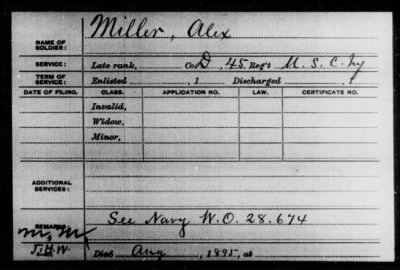 NAME OF SOLDIER: Miller, Alex
SERVICE: Late rank, Co. D, 45 Reg't U.S.C. Inf
TERM OF SERVICE: Enlisted , 1 Discharged , 1
DATE OF FILING. CLASS. APPLICATION NO. LAW. CERTIFICATE NO.
Invalid,
Widow,
Minor,
ADDITIONAL SERVICES:
REMARKS: See Navy W.O. 28.674
J.H.W. Died Aug , 1895, at